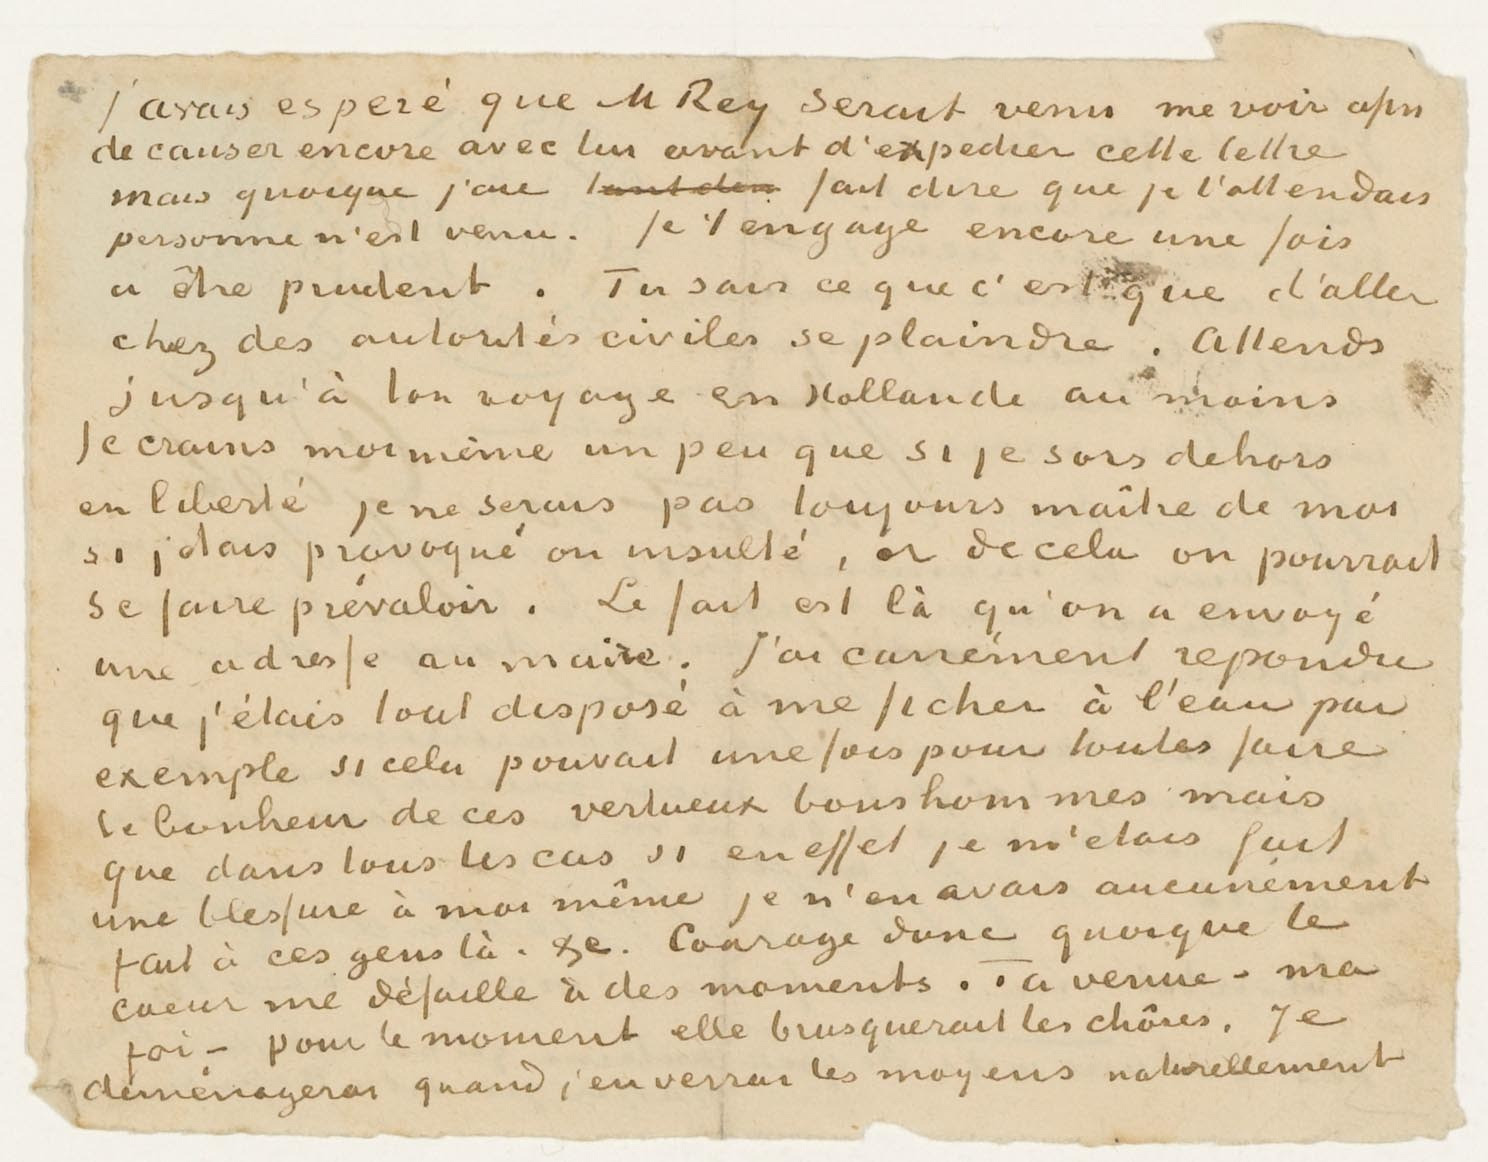 j'avais esperé que M Rey serait venu me voir afin
de causer encore avec lui avant d'expedier cette lettre
mais quoique j'aie fait dire que je l'attendais
personne n'est venu. Je t'engage encore une fois
a être prudent. Tu sais ce que c'est que d'aller
chez des autorités civiles se plaindre. Attends
jusqu'à ton voyage en Hollande au moins
Je crains moi même un peu que si je sors dehors
en liberté je ne serais pas toujours maître de moi
si j'étais provoqué ou insulté, et de cela on pourrait
se faire prévaloir. Le fait est là qu'on a envoyé
une adresse au maire. J'ai carrément repondu
que j'étais tout disposé à me ficher à l'eau par
exemple si cela pouvait une fois pour toutes faire
le bonheur de ces vertueux bonshommes mais
que dans tous les cas si en effet je m'etais fait
une blessure à moi même je n'en avais aucunément
fait à ces gens là. &c. Courage donc quoique le
coeur me défaille à des moments. Ta venue – ma
foi – pour le moment elle brusquerait les chôses. Je
déménagerai quand j'en verrai les moyens naturellement